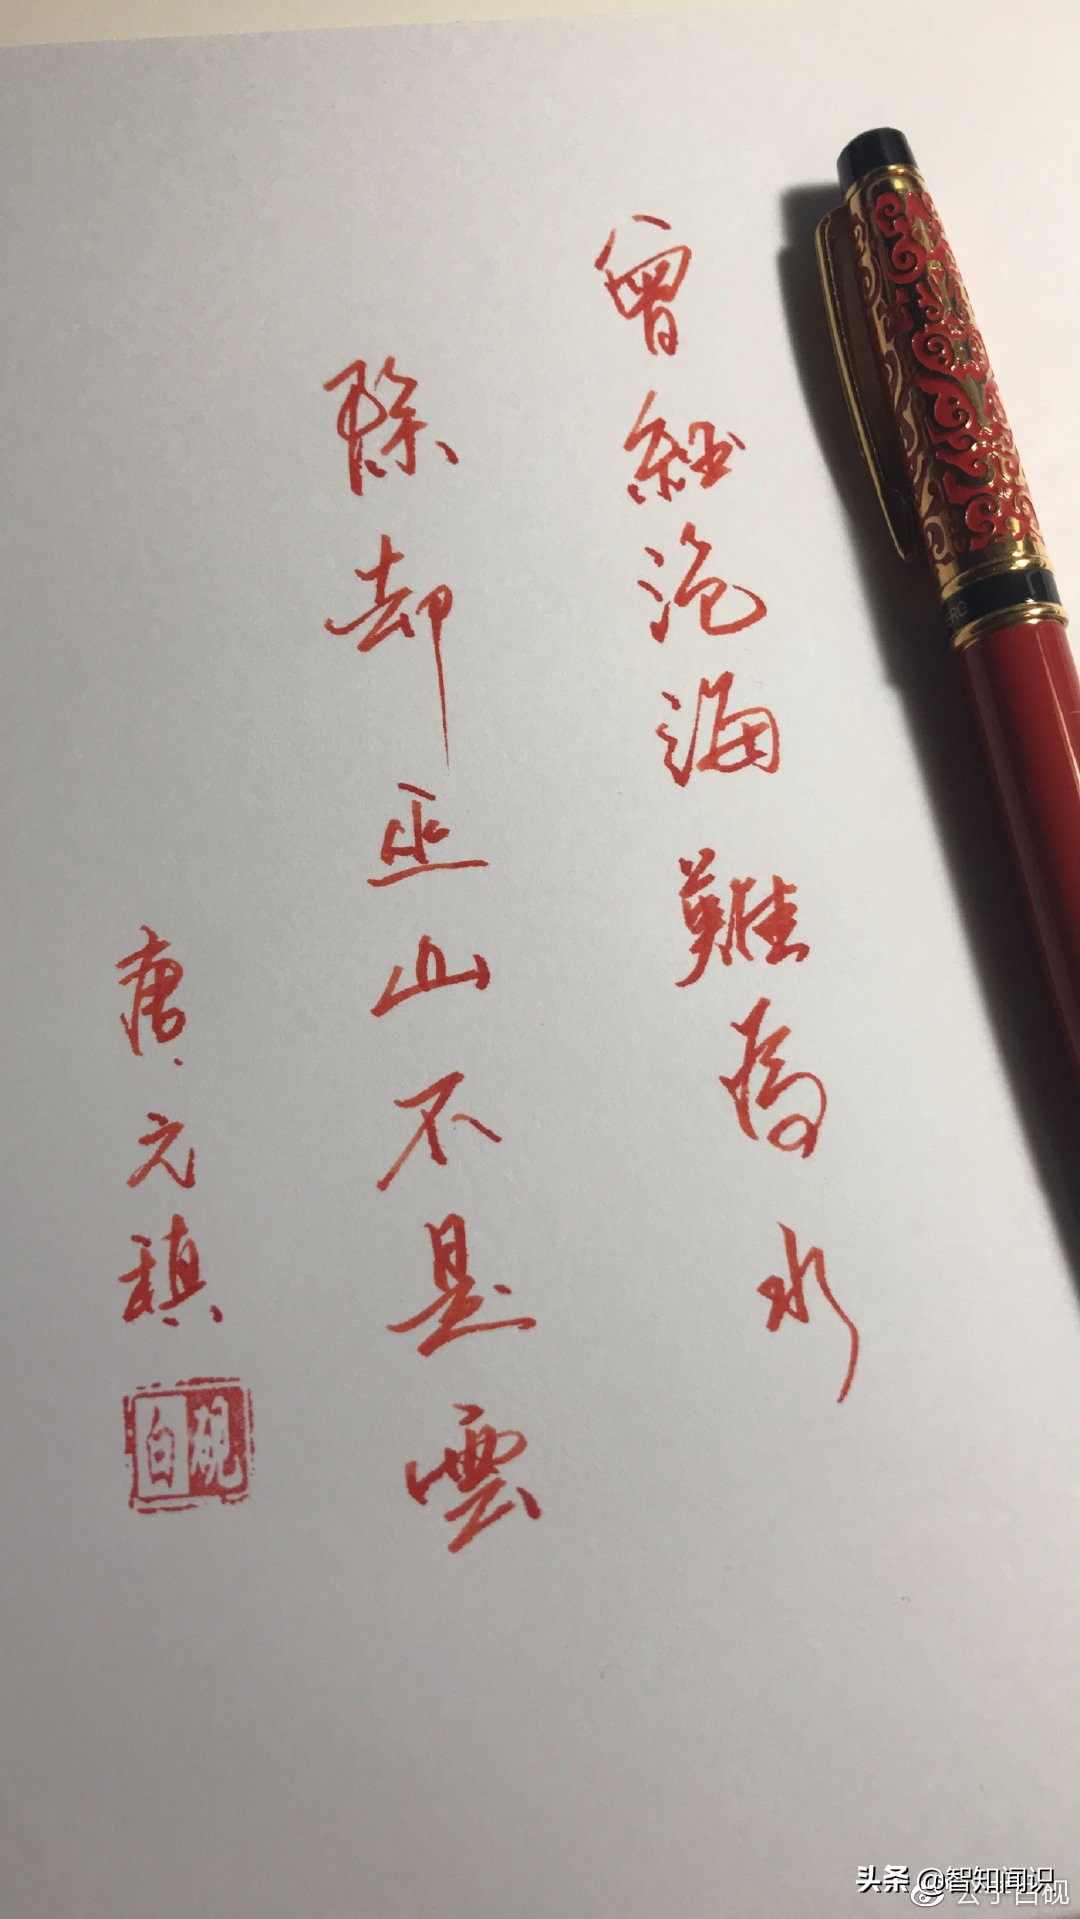 曾經滄海難為水
除却巫山不是雲
唐 元稹
白砚
头条 @智知闻识